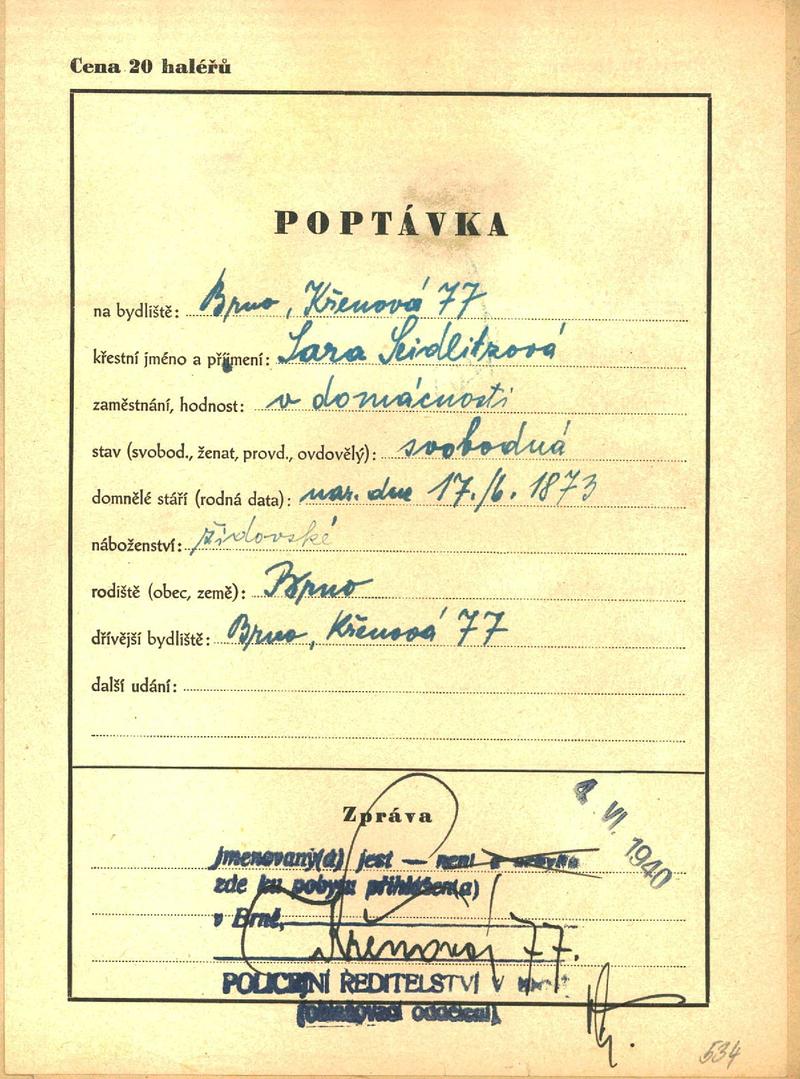 Cena 20 haléřů
POPTÁVKA
na bydliště: Brno, Křenová 77
křestní jméno a příjmení: Sara Seidlitzová
zaměstnání, hodnost: v domácnosti
stav (svobod., ženat, provd., ovdovělý): svobodná
domnělé stáří (rodná data): nar. dne 17./6. 1873
náboženství: židovské
rodiště (obec, země): Brno
dřívější bydliště: Brno, Křenová 77
další udání:
Zpráva
VI. 1940
Jmenovaný(á) jest — není a nebyl(a)
zde ku pobytu přihlášen(a)
v Brně,
Křenová 77.
POLICEJNÍ ŘEDITELSTVÍ V
(ohlašovací oddělení).
534